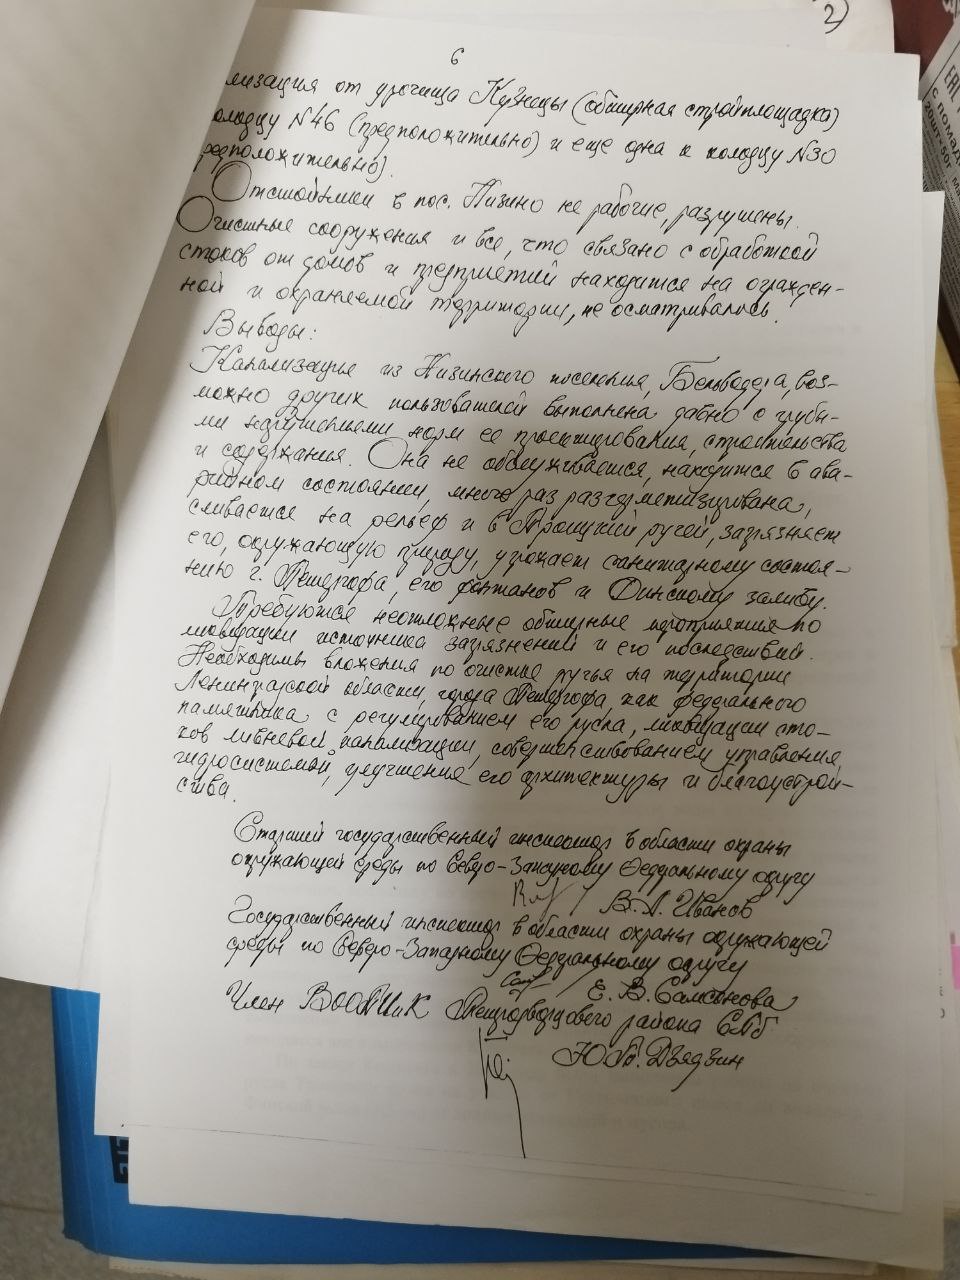 2)
6
лизация от урочища Кузнецы (обширная стройплощадка)
олодцу N46 (предположительно) и еще одна к колодцу N30
редположительно).
Отстойники в пос. Низино не рабочие, разрушены.
Очистные сооружения и все, что связано с обработкой
стоков от домов и предприятий находится на огражден-
ной и охраняемой территории, не осматривались.
Выводы:
Канализация из Низинского поселения, Бельведера, воз-
можно других пользователей выполнена давно с грубы-
ми нарушениями норм ее проектирования, строительства
и содержания. Она не обслуживается, находится в ава-
рийном состоянии, много раз разгерметизирована,
сливается на рельеф и в Троицкий ручей, загрязняет
его, окружающую природу, угрожает санитарному состоя-
нию г. Петергофа, его фонтанов и Финскому заливу.
Требуются неотложные обширные мероприятия по
ликвидации источника загрязнений и его последствий.
Необходимы вложения по очистке ручья на территории
Ленинградской области, города Петергофа, как федерального
памятника с регулированием его русла, ликвидации сто-
ков ливневой канализации, совершенствованием управления
гидросистемой, улучшения его архитектуры и благоустрой-
ства.
Старший государственный инспектор в области охраны
окружающей среды по Северо-Западному Федеральному округу
В.А. Иванов
Государственный инспектор в области охраны окружающей
среды по Северо-Западному Федеральному округу
Е. В. Самсонова
Член ВООПИиК Петродворцового района СПб
20шт×50г